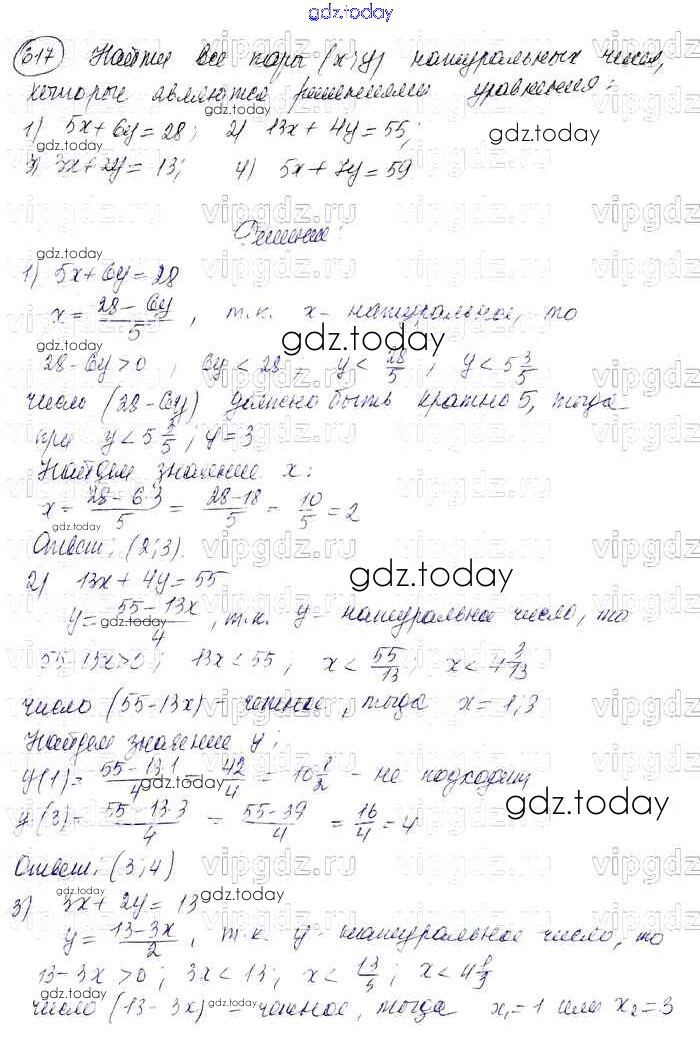 gdz.today
617 Найти все пары (x; y) натуральных чисел,
которые являются решениями уравнения:
1) 5x + 6y = 28; 2) 13x + 4y = 55;
gdz.today
gdz.today
3) 3x + 2y = 13; 4) 5x + 7y = 59
vipgdz.ru vipgdz.ru vipgdz.ru
Решение:
gdz.today
1) 5x + 6y = 28
x = (28 - 6y)/5, т.к. x - натуральное, то
gdz.today
28 - 6y > 0, 6y < 28 y < 28/5, y < 5 3/5
число (28 - 6y) должно быть кратно 5, тогда
при y < 5 3/5; y = 3
Найдем значение x:
x = (28 - 6·3)/5 = (28 - 18)/5 = 10/5 = 2
gdz.today
gdz.today
Ответ: (2; 3).
2) 13x + 4y = 55
gdz.today
y = (55 - 13x)/4, т.к. y - натуральное число, то
gdz.today
55 - 13x > 0; 13x < 55; x < 55/13; x < 4 3/13
число (55 - 13x) - четное, тогда x = 1; 3
Найдем значение y:
y(1) = (55 - 13·1)/4 = 42/4 = 10 1/2 - не подходит
gdz.today
y(3) = (55 - 13·3)/4 = (55 - 39)/4 = 16/4 = 4
Ответ: (3; 4)
gdz.today
gdz.today
3) 3x + 2y = 13
y = (13 - 3x)/2, т.к. y - натуральное число, то
gdz.today
13 - 3x > 0; 3x < 13; x < 13/3; x < 4 1/3
число (13 - 3x) - четное, тогда x₁ = 1 или x₂ = 3
gdz.today